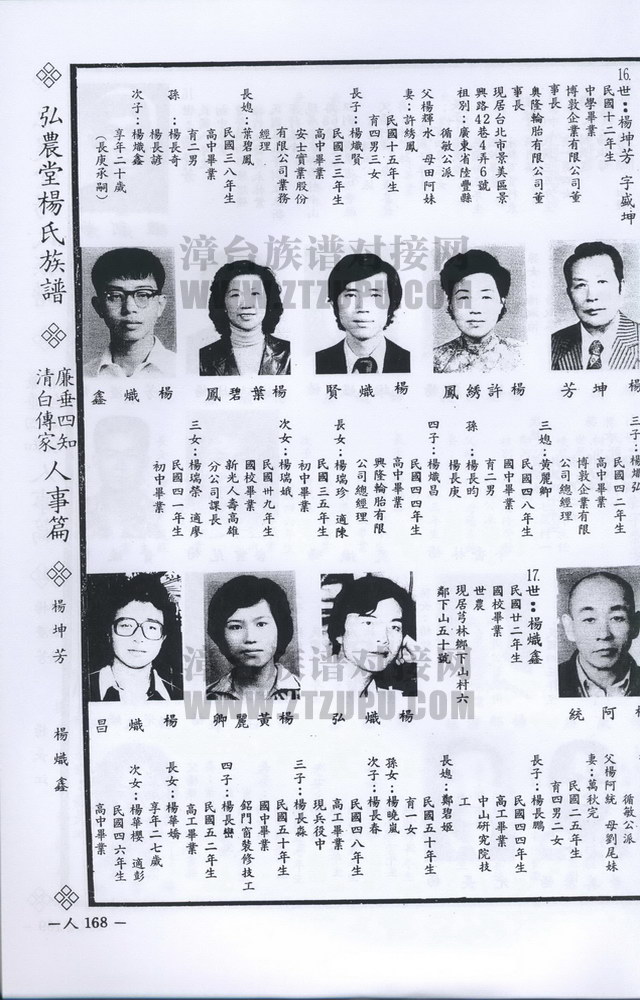 弘農堂楊氏族譜
廉垂四知
清白傳家
人事篇
楊坤芳
楊熾鑫
16.世：楊坤芳 字盛坤
民國十二年生
中學畢業
博敦企業有限公司董
事長
奧隆輪胎有限公司董
事長
現居台北市景美區景
興路42巷4弄6號
祖別：廣東省陸豐縣
循敏公派
父楊輝水 母田阿妹
妻：許綉鳳
民國十五年生
育四男三女
長子：楊熾賢
民國三三年生
高中畢業
安士實業股份
有限公司業務
經理
長媳：葉碧鳳
民國三八年生
高中畢業
育二男
孫：楊長奇
楊長諺
次子：楊熾鑫
享年二十歲
（長庚承嗣）
楊坤芳
楊許綉鳳
楊熾賢
楊葉碧鳳
楊熾鑫
三子：楊熾弘
民國四二年生
高中畢業
博敦企業有限
公司總經理
三媳：黃麗卿
民國四八年生
國中畢業
育二男
孫：楊長昀
楊長庚
四子：楊熾昌
民國四四年生
高中畢業
興隆輪胎有限
公司總經理
長女：楊瑞珍 適陳
民國三五年生
初中畢業
次女：楊瑞娥
民國卅九年生
國校畢業
新光人壽高雄
分公司課長
三女：楊瑞榮 適廖
民國四一年生
初中畢業
17.世：楊熾鑫
民國廿二年生
國校畢業
世農
現居芎林鄉下山村六
鄰下山五十號
楊阿統
楊熾弘
楊黃麗卿
楊熾昌
循敏公派
父楊阿統 母劉尾妹
妻：萬秋完
民國二五年生
育四男二女
長子：楊長鵬
民國四四年生
高工畢業
中山研究院技
工
長媳：鄭碧姬
民國五十年生
育一女
孫女：楊曉嵐
次子：楊長春
民國四八年生
高工畢業
現兵役中
三子：楊長淼
民國五十年生
國中畢業
鋁門窗裝修技工
四子：楊長巒
民國五二年生
高工畢業
長女：楊華嬌
享年二七歲
次女：楊華櫻 適彭
民國四六年生
高中畢業
—人 168 —
漳台族谱对接网
WWW.ZTZUPU.COM
漳台族谱对接网
WWW.ZTZUPU.COM